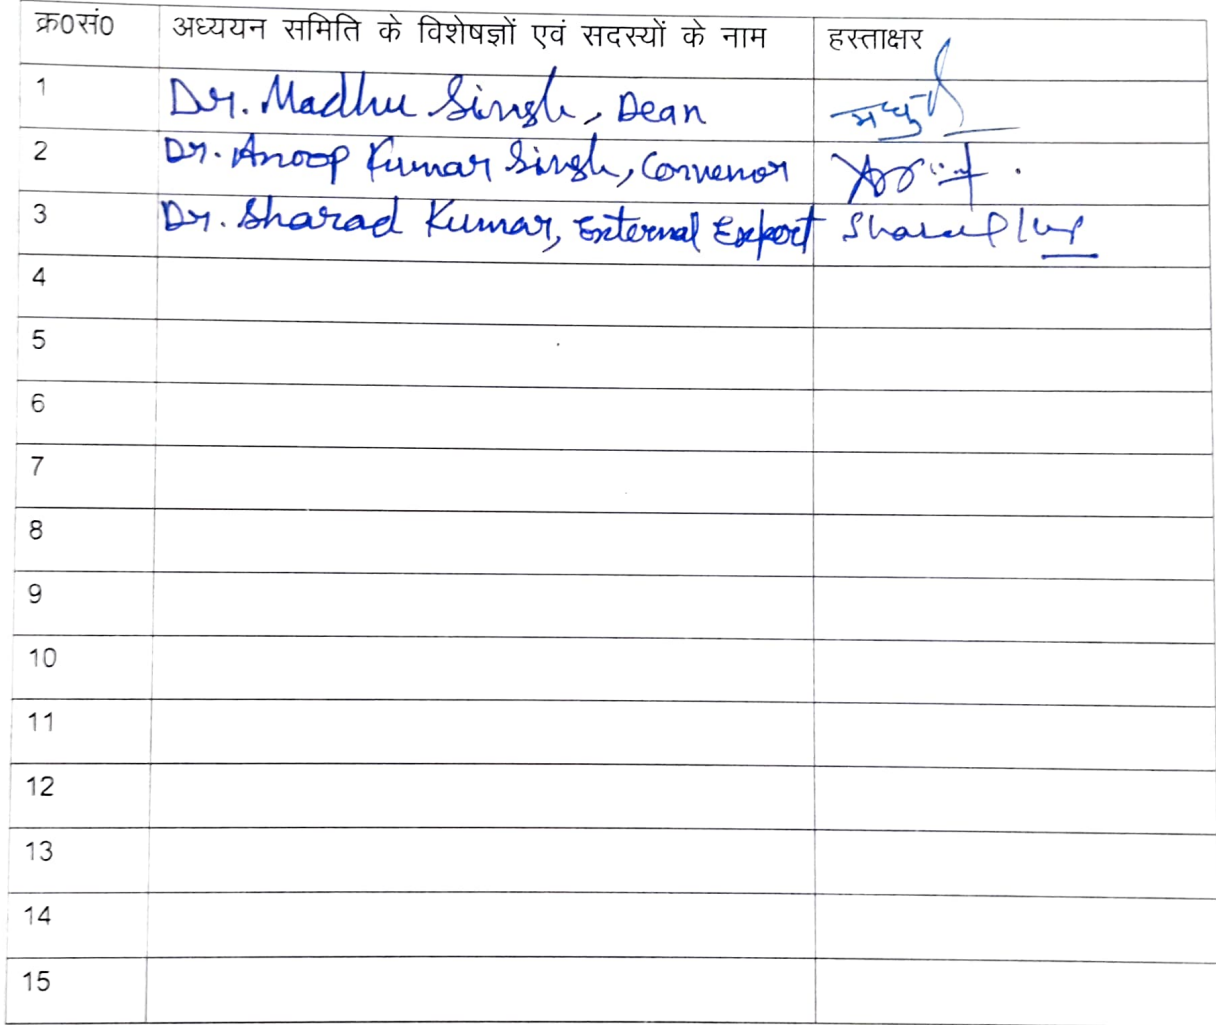 क्र0सं0 अध्ययन समिति के विशेषज्ञों एवं सदस्यों के नाम हस्ताक्षर
1 Dr. Madhu Singh, Dean मधु
2 Dr. Anoop Kumar Singh, Convenor
3 Dr. Sharad Kumar, External Expert Sharad
4
5
6
7
8
9
10
11
12
13
14
15